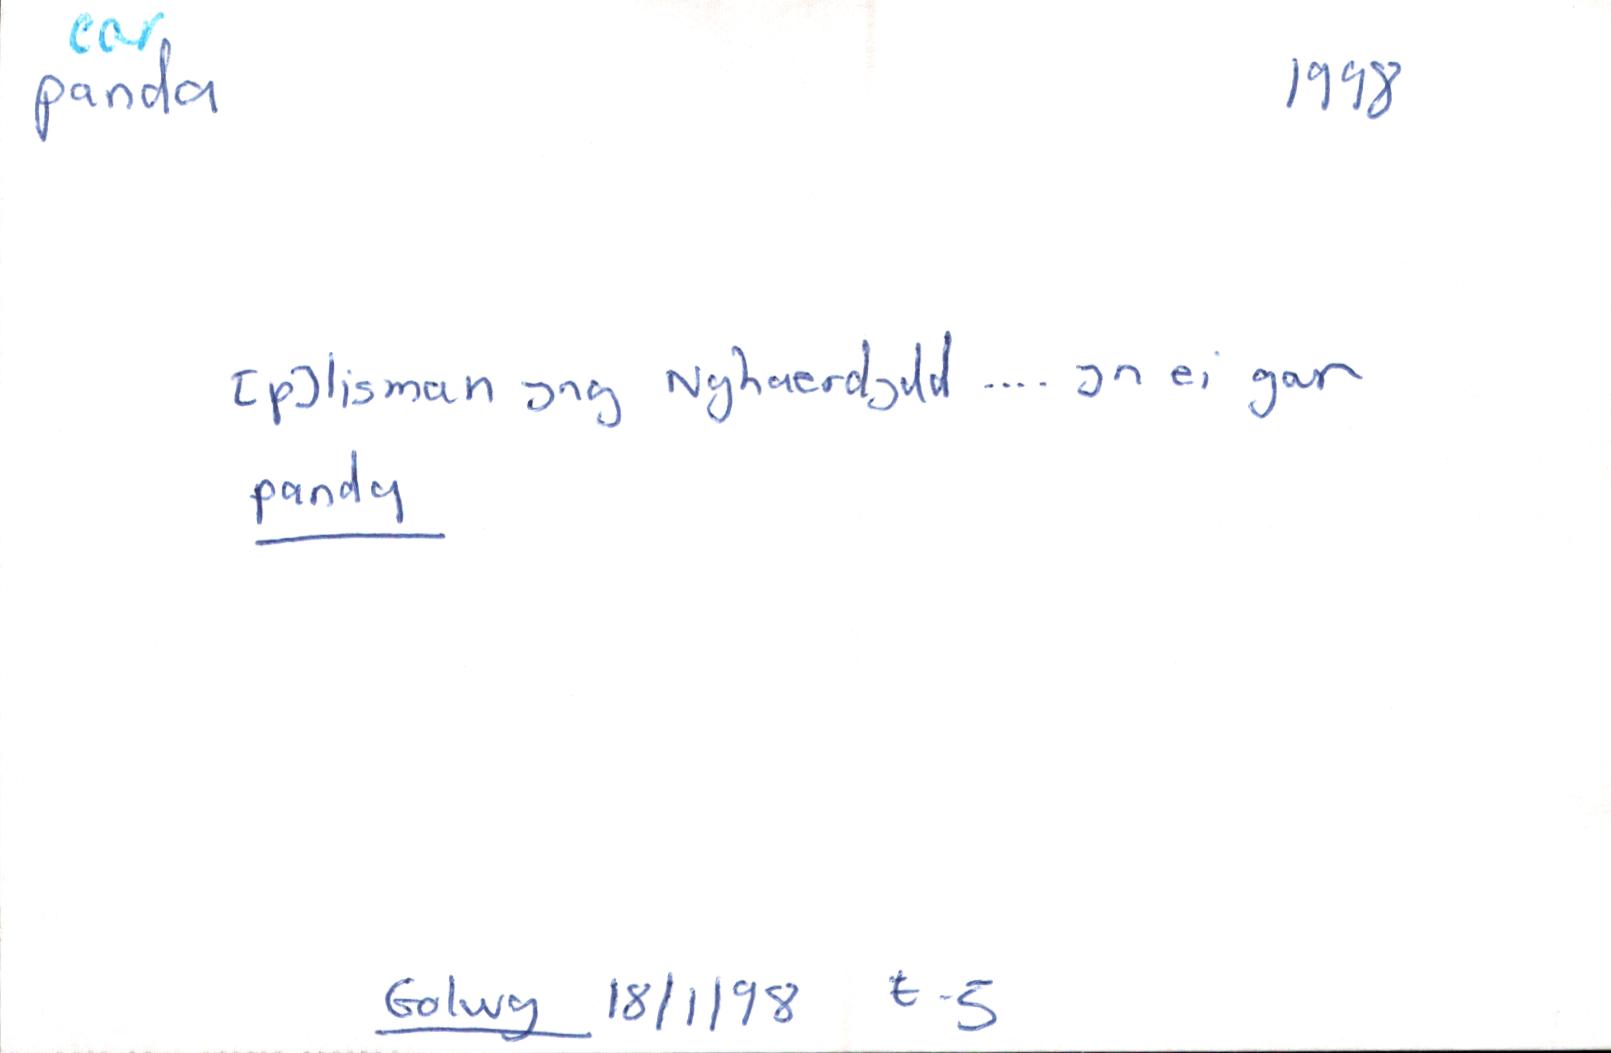 car
panda 1998
[p]lisman yng Nghaerdydd .... yn ei gar
panda
Golwg 18/1/98 t.5